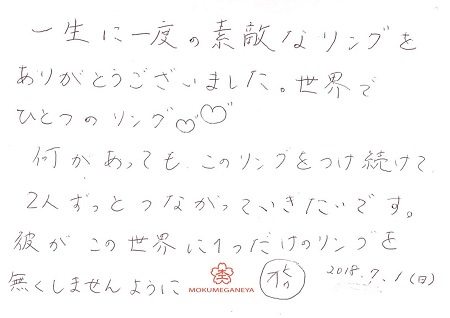 一生に一度の素敵なリングを
ありがとうございました。世界で
ひとつのリング♡♡
何があっても このリングをつけ続けて
2人ずっとつながっていきたいです。
彼が この世界に1つだけのリングを
無くしませんように
MOKUMEGANEYA
2018.7.1(日)